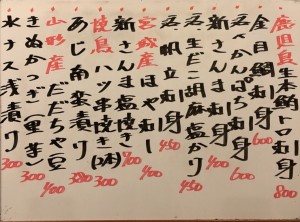 鹿児島生本鮪トロ刺身 800
金目鯛刺身 600
活〆かんぱち刺身 600
活〆帆立刺身 400
生だこ胡麻塩かり 450
宮城産ほや刺し 400
新さんま塩焼き 400
焼鳥ハツ串焼き(2本) 300
あじ南蛮漬け 380
山形産だだちゃ豆 400
きぬかつぎ(里芋) 300
水ナス浅漬け 300